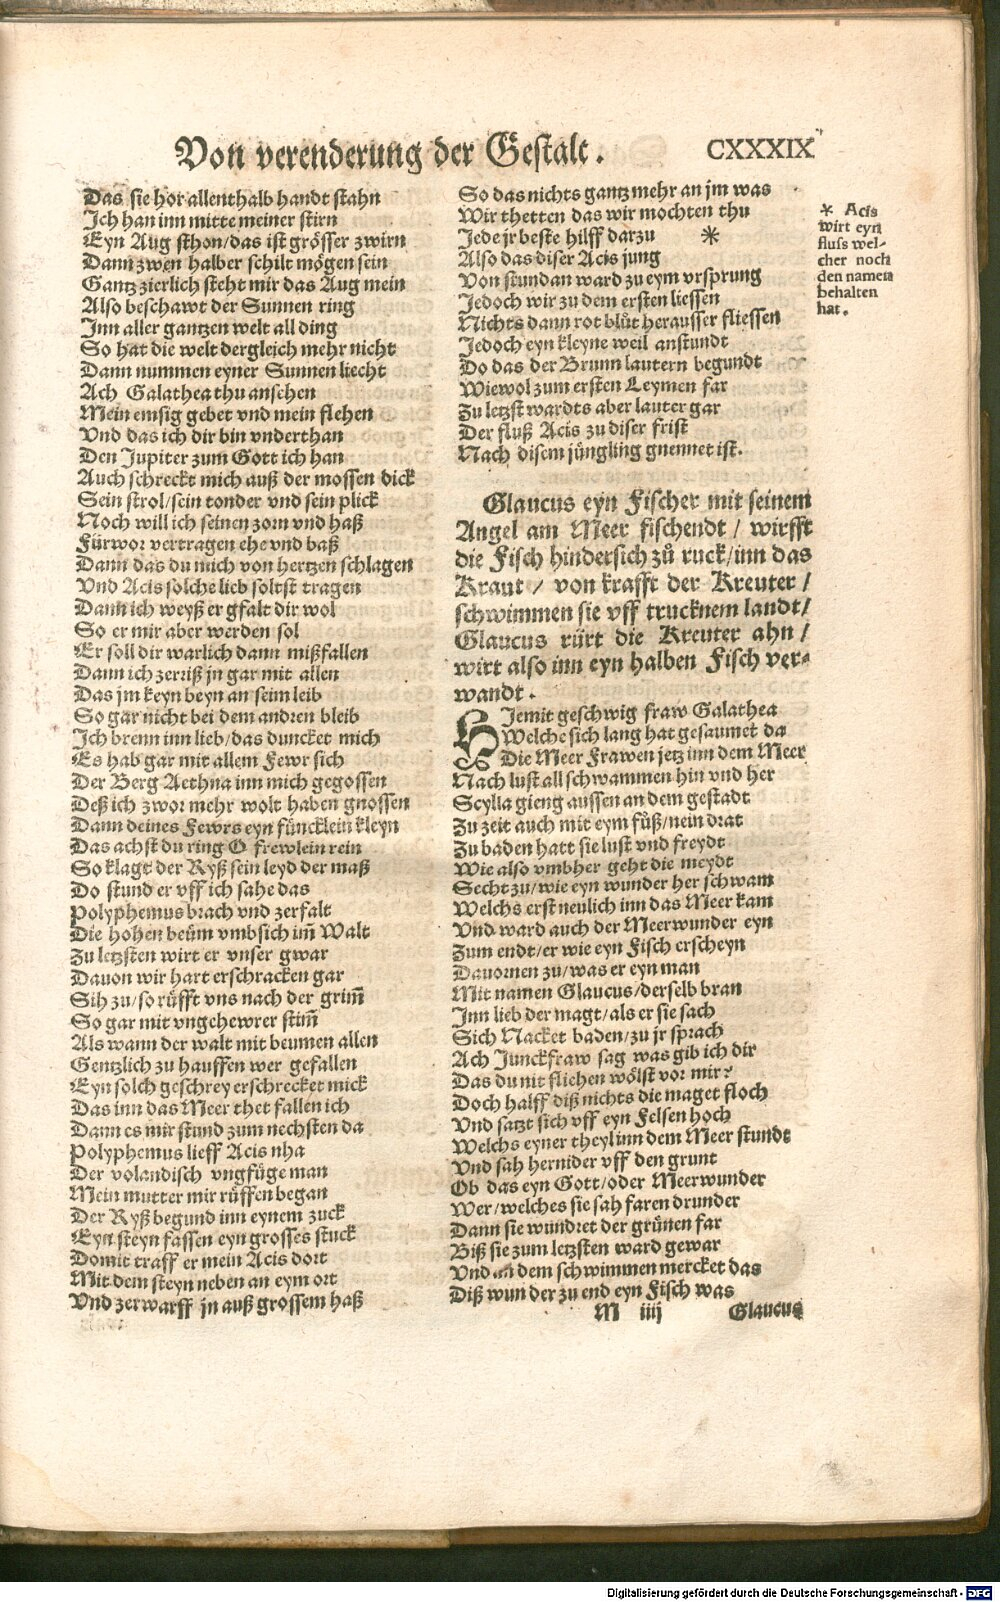 Von verenderung der Gestalt. CXXXIX
Das sie hor allenthalb handt stahn
Ich han inn mitte meiner stirn
Eyn Aug schon/das ist grösser zwirn
Dann zwen halber schilt mögen sein
Gantz zierlich steht mir das Aug mein
Also beschawt der Sunnen ring
Inn aller gantzen welt all ding
So hat die welt dergleich mehr nicht
Dann nummen eyner Sunnen liecht
Ach Galathea thu ansehen
Mein emsig gebet vnd mein flehen
Vnd das ich dir bin vnderthan
Den Jupiter zum Gott ich han
Auch schreckt mich auß der mossen dick
Sein strol/sein tonder vnd sein plick
Noch will ich seinen zorn vnd haß
Fürwor vertragen ehe vnd baß
Dann das du mich von hertzen schlagen
Vnd Acis solche lieb soltst tragen
Dann ich weyß er gfalt dir wol
So er mir aber werden sol
Er soll dir warlich dann mißfallen
Dann ich zerriß jn gar mit allen
Das jm keyn beyn an seim leib
So gar nicht bei dem andren bleib
Ich brenn inn lieb/das duncket mich
Es hab gar mit allem Fewr sich
Der Berg Aethna inn mich gegossen
Deß ich zwor mehr wolt haben gnossen
Dann deines Fewrs eyn füncklein kleyn
Das achst du ring O frewlein rein
So klagt der Ryß sein leyd der maß
Do stund er vff ich sahe das
Polyphemus brach vnd zerfalt
Die hohen beüm vmbsich im̃ Walt
Zu letzsten wirt er vnser gwar
Dauon wir hart erschracken gar
Sih zu/so rüfft vns nach der grim̃
So gar mit vngehewrer stim̃
Als wann der walt mit beumen allen
Gentzlich zu hauffen wer gefallen
Eyn solch geschrey erschrecket mick
Das inn das Meer thet fallen ich
Dann es mir stund zum nechsten da
Polyphemus lieff Acis nha
Der volandisch vngfüge man
Mein mutter mir rüffen began
Der Ryß begund inn eynem zuck
Eyn steyn fassen eyn grosses stuck
Domit traff er mein Acis dort
Mit dem steyn neben an eym ort
Vnd zerwarff jn auß grossem haß
So das nichts gantz mehr an jm was
Wir thetten das wir mochten thu
Jede jr beste hilff darzu *
Also das diser Acis jung
Von stundan ward zu eym vrsprung
Jedoch wir zu dem ersten liessen
Nichts dann rot blůt herausser fliessen
Jedoch eyn kleyne weil anstundt
Do das der Brunn lautern begundt
Wiewol zum ersten Leymen far
Zu letzst wardts aber lauter gar
Der fluß Acis zu diser frist
Nach disem jüngling gnennet ist.
* Acis
wirt eyn
fluss wel-
cher noch
den namen
behalten
hat.
Glaucus eyn Fischer mit seinem
Angel am Meer fischendt / wirfft
die Fisch hindersich zů ruck/inn das
Kraut / von krafft der Kreuter /
schwimmen sie vff trucknem landt/
Glaucus rürt die Kreuter ahn /
wirt also inn eyn halben Fisch ver-
wandt.
HJemit geschwig fraw Galathea
Welche sich lang hat gesaumet da
Die Meer Frawen jetz inn dem Meer
Nach lust all schwammen hin vnd her
Scylla gieng aussen an dem gestadt
Zu zeit auch mit eym fůß/nein drat
Zu baden hatt sie lust vnd freydt
Wie also vmbher geht die meydt
Secht zu/wie eyn wunder her schwam
Welchs erst neulich inn das Meer kam
Vnd ward auch der Meerwunder eyn
Zum endt/er wie eyn Fisch erscheyn
Dauornen zu/was er eyn man
Mit namen Glaucus/derselb bran
Inn lieb der magt/als er sie sach
Sich Nacket baden/zu jr sprach
Ach Junckfraw sag was gib ich dir
Das du nit fliehen wölst vor mir?
Doch halff diß nichts die maget floch
Vnd satzt sich vff eyn Felsen hoch
Welchs eyner theyl inn dem Meer stundt
Vnd sah hernider vff den grunt
Ob das eyn Gott/oder Meerwunder
Wer/welches sie sah faren drunder
Dann sie wundret der grünen far
Biß sie zum letzsten ward gewar
Vnd an dem schwimmen mercket das
Diß wunder zu end eyn Fisch was
M iiij Glaucus
Digitalisierung gefördert durch die Deutsche Forschungsgemeinschaft - DFG